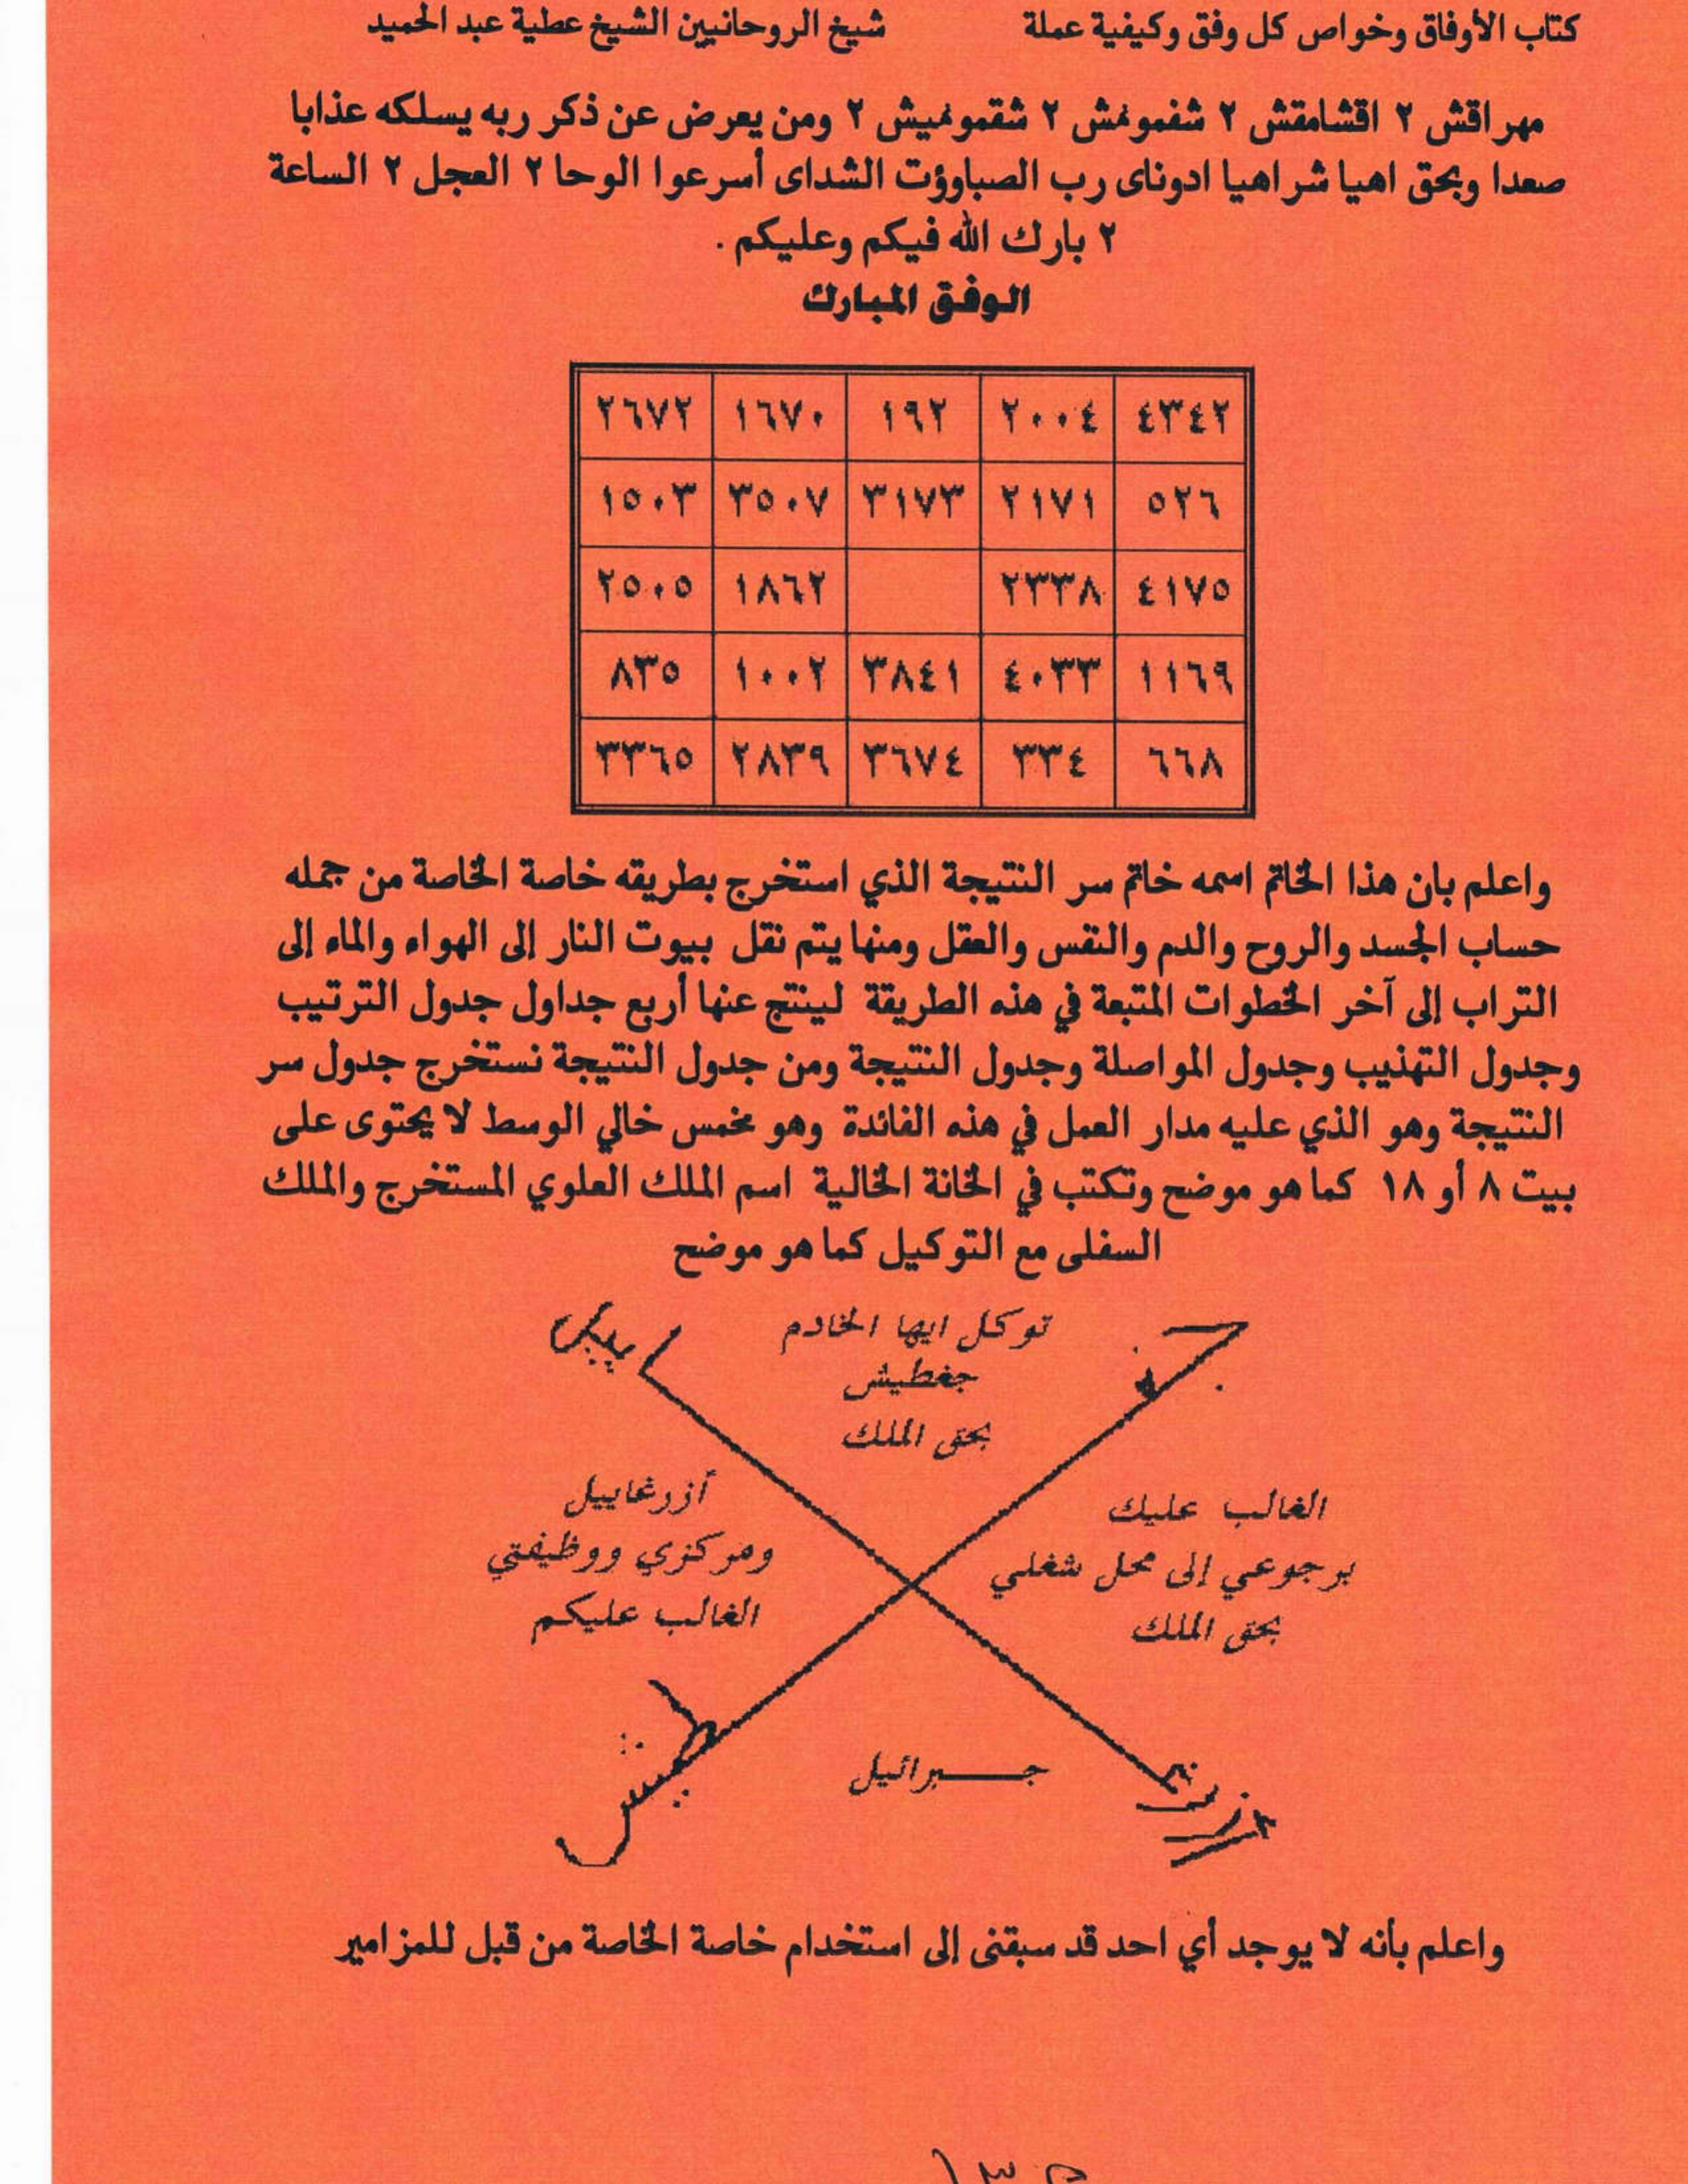 كتاب الأوفاق وخواص كل وفق وكيفية عملة شيخ الروحانيين الشيخ عطية عبد الحميد
مهراقش ٢ اقشامقش ٢ شفمونمش ٢ شقمونميش ٢ ومن يعرض عن ذكر ربه يسلكه عذابا
صعدا وبحق اهيا شراهيا ادوناى رب الصباوؤت الشداى أسرعوا الوحا ٢ العجل ٢ الساعة
٢ بارك الله فيكم وعليكم .
الوفق المبارك
٤٣٤٢ ٢٠٠٤ ١٩٢ ١٦٧٠ ٢٦٧٢
٥٢٦ ٢١٧١ ٣١٧٣ ٣٥٠٧ ١٥٠٣
٤١٧٥ ٢٣٣٨ ١٨٦٢ ٢٥٠٥
١١٦٩ ٤٠٣٣ ٣٨٤١ ١٠٠٢ ٨٣٥
٦٦٨ ٣٣٤ ٣٦٧٤ ٢٨٣٩ ٣٣٦٥
واعلم بان هذا الخاتم اسمه خاتم سر النتيجة الذي استخرج بطريقه خاصة الخاصة من جمله
حساب الجسد والروح والدم والنفس والعقل ومنها يتم نقل بيوت النار إلى الهواء والماء إلى
التراب إلى آخر الخطوات المتبعة في هذه الطريقة لينتج عنها أربع جداول جدول الترتيب
وجدول التهذيب وجدول المواصلة وجدول النتيجة ومن جدول النتيجة نستخرج جدول سر
النتيجة وهو الذي عليه مدار العمل في هذه الفائدة وهو مخمس خالي الوسط لا يحتوى على
بيت ٨ أو ١٨ كما هو موضح وتكتب في الخانة الخالية اسم الملك العلوي المستخرج والملك
السفلى مع التوكيل كما هو موضح
توكل ايها الخادم
جغطيش
بحق الملك
الغالب عليك
برجوعي إلى محل شغلي
بحق الملك
أزرغاييل
ومركزي ووظيفتي
الغالب عليكم
جبرائيل
واعلم بأنه لا يوجد أي احد قد سبقنى إلى استخدام خاصة الخاصة من قبل للمزامير